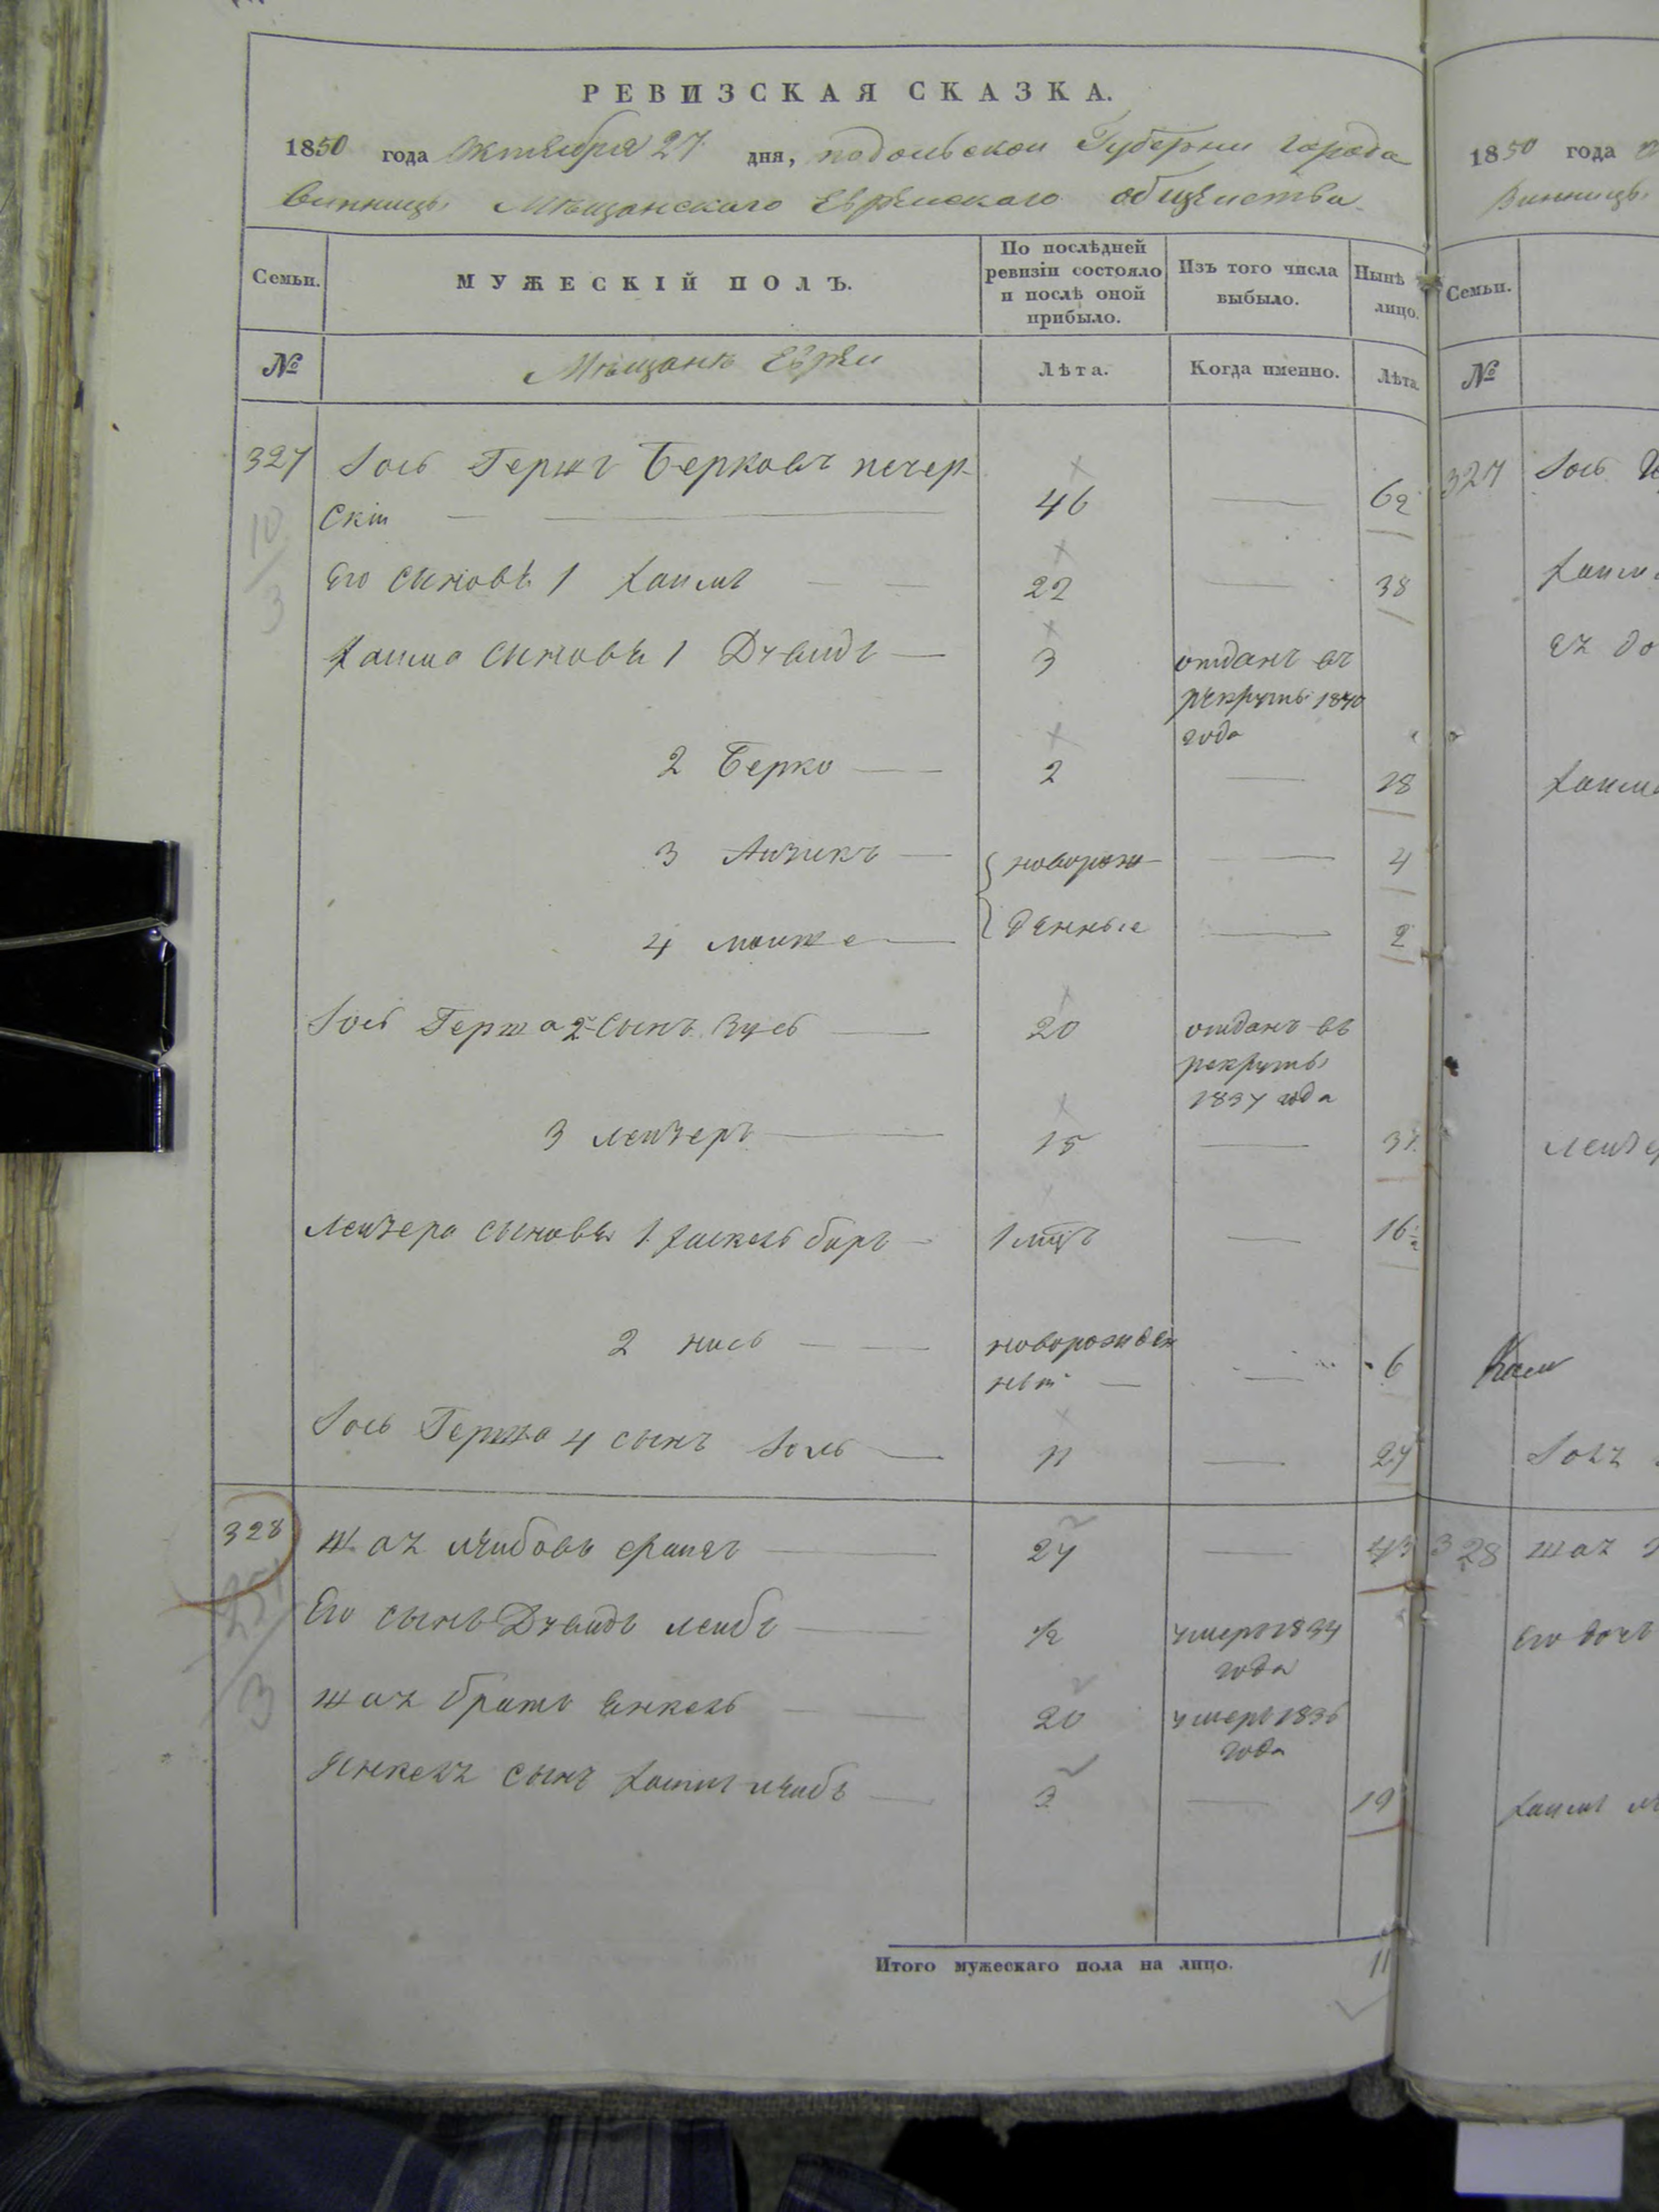 РЕВИЗСКАЯ СКАЗКА.
1850 года Октября 27 дня, подольской Губерни города
винницы Мѣщанскаго Еврейскаго общества
Семьи.
МУЖЕСКІЙ ПОЛЪ.
По послѣдней
ревизіи состояло
и послѣ оной
прибыло.
Изъ того числа
выбыло.
Нынѣ
лицо.
№
Мѣщанъ Евреи
Лѣта.
Когда именно.
Лѣта.
327 Іось Гершъ Берковъ печер
скій 46 62
10/3
Его синовя 1 Хаимъ 22 38
Хаима синовя 1 Дувидъ 3 отданъ въ
рекруты 1840
года
2 Берко 2 18
3 Аизикъ новорож 4
4 мошке денные 2
Іось Герша 2 сынъ Зусь 20 отданъ въ
рекруты
1837 года
3 лейзеръ 15 31
Лейзера сыновя 1 Хаскель беръ 16 1/2
2 нись новорожден 6
ный
Іось Герша 4 сынъ 11 27
328 43
25/3
Его сынъ Дувидъ лейбъ 1/2 умеръ 1834
года
братъ Янкель 20 умеръ 1836
года
Янкеля сынъ Хаимъ лейбъ 3 19
Итого мужескаго пола на лицо. 11
1850 года
Винницы
Семьи.
№
327 Іось
Хаима
его до
Хаима
лейзе
328
Его дочь
Хаимъ